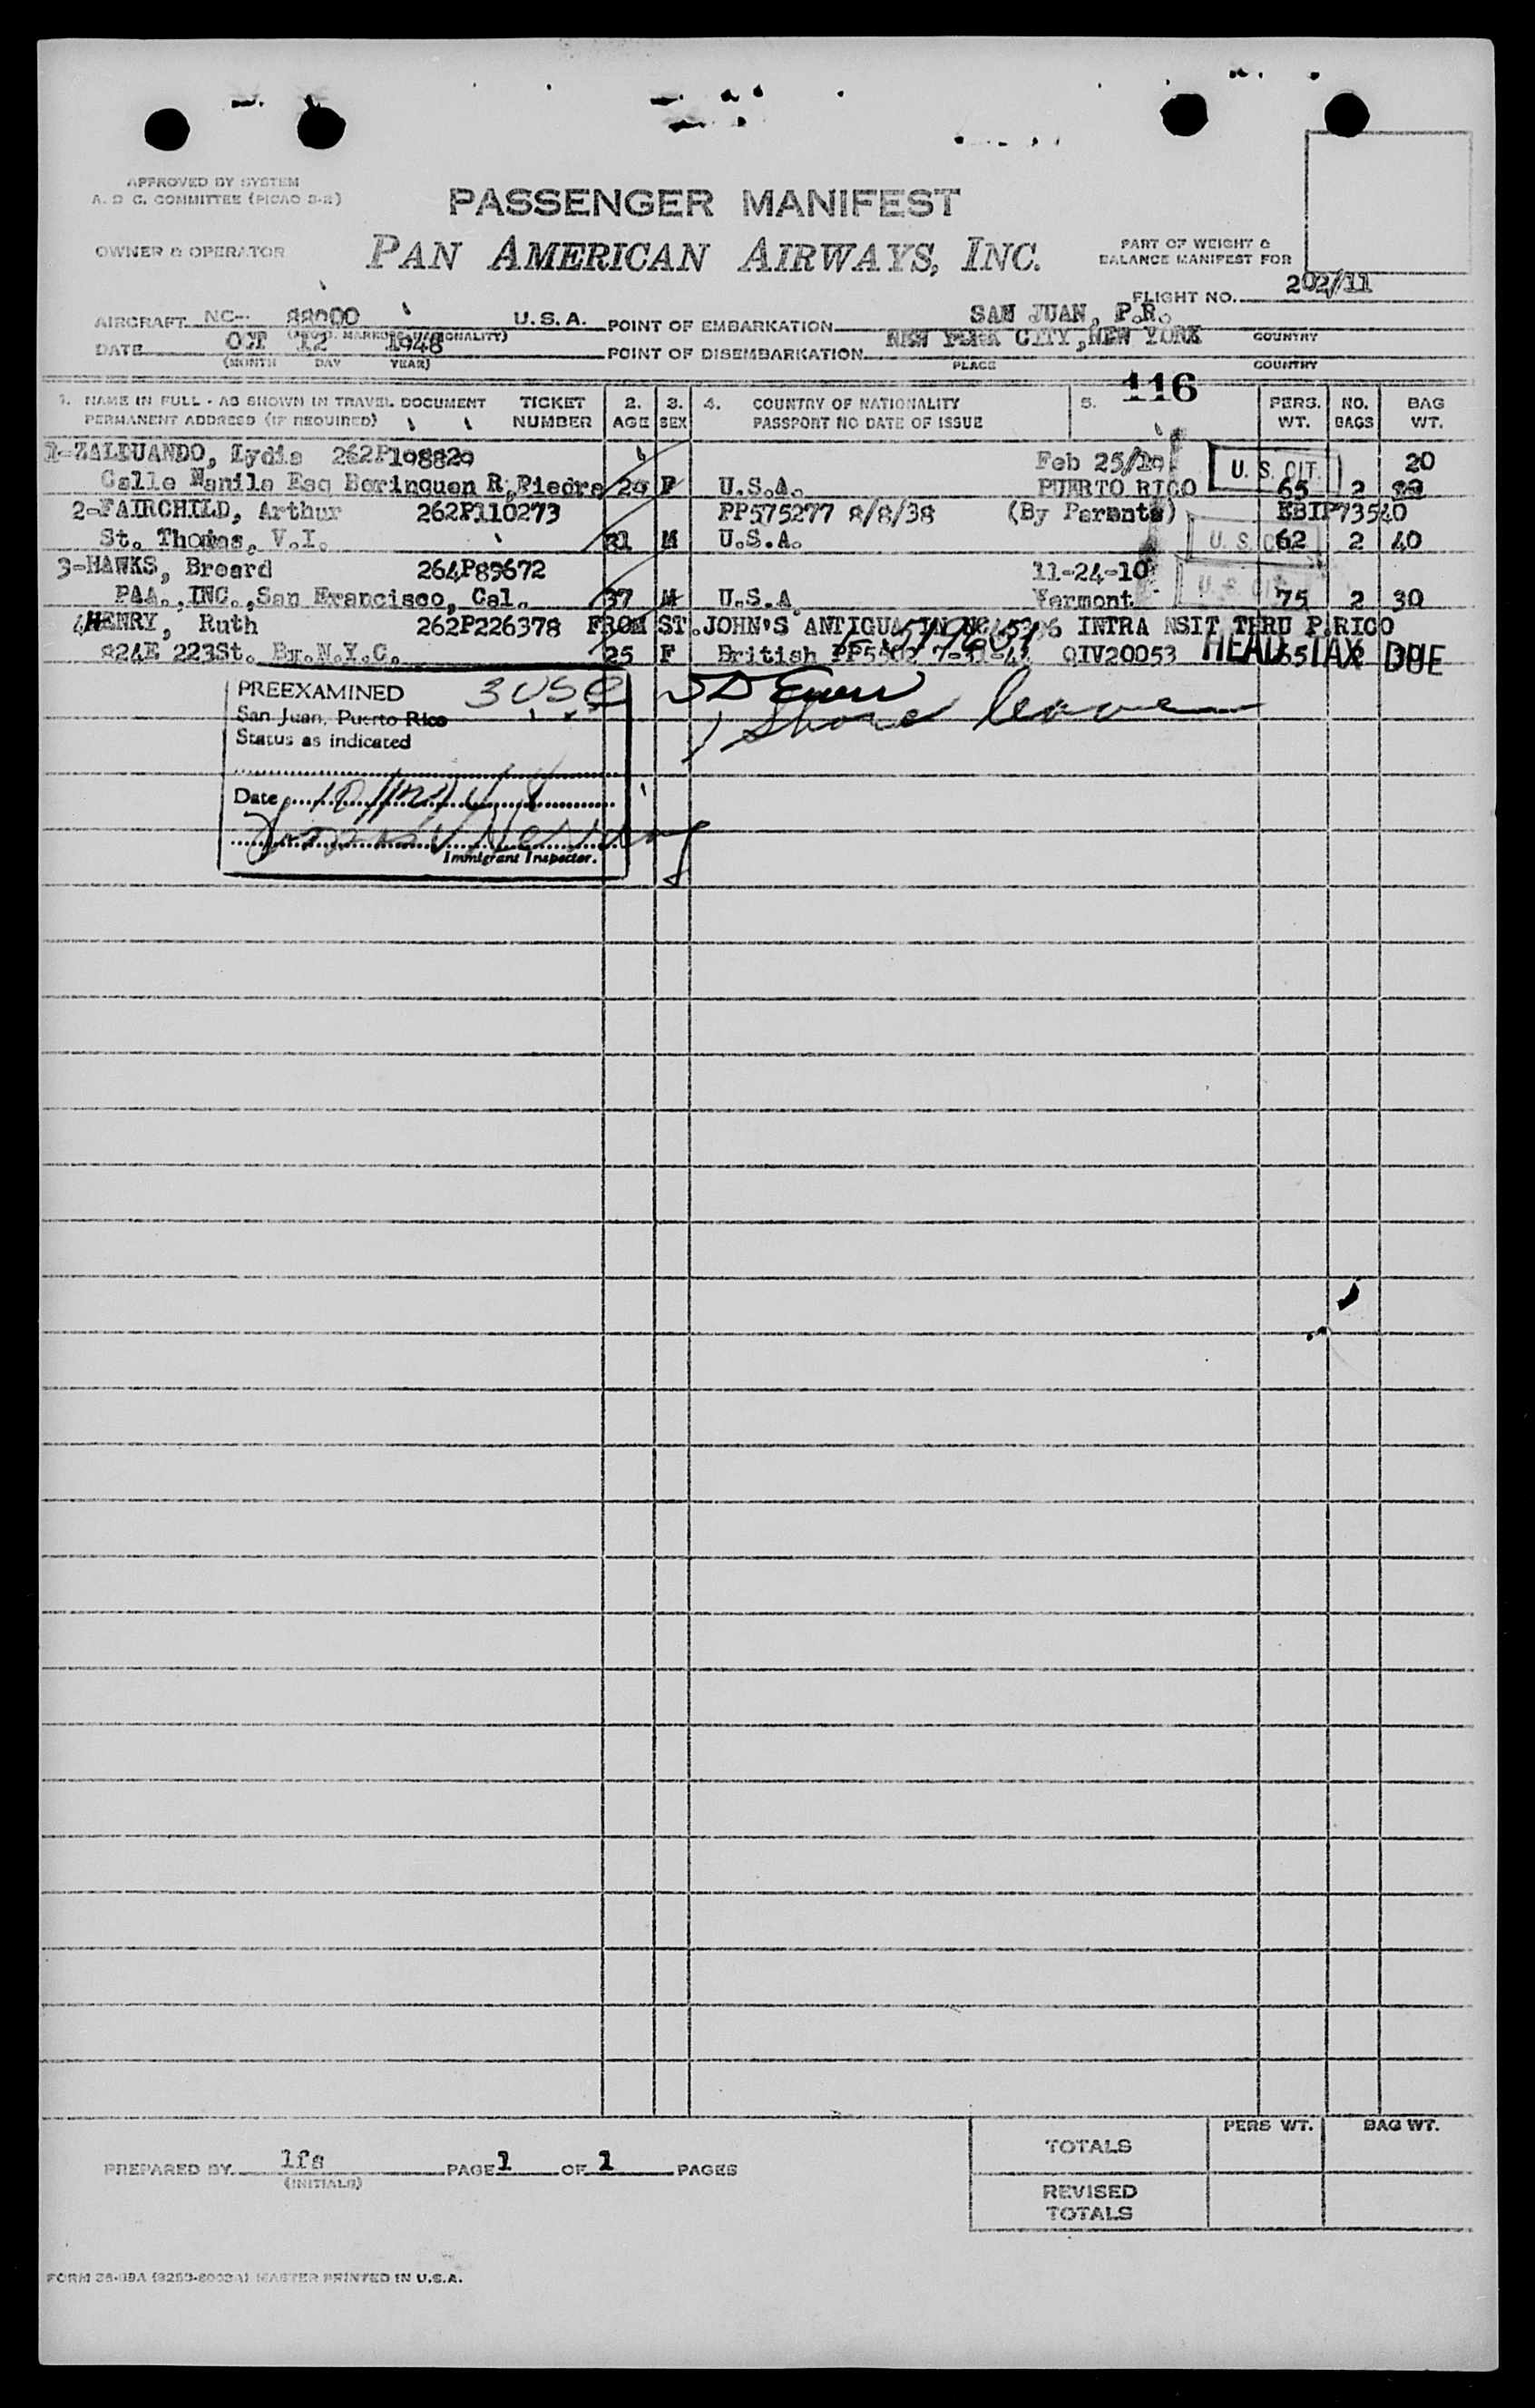 APPROVED BY SYSTEM
A. D C. COMMITTEE (PICAO 3-2)
PASSENGER MANIFEST
OWNER & OPERATOR
PAN AMERICAN AIRWAYS, INC.
PART OF WEIGHT &
BALANCE MANIFEST FOR
FLIGHT NO. 202/11
AIRCRAFT NC- 88000 U.S.A. POINT OF EMBARKATION SAN JUAN, P.R. COUNTRY
DATE OCT 12 1948 POINT OF DISEMBARKATION NEW YORK CITY, NEW YORK
(MONTH DAY YEAR) PLACE COUNTRY
116
1. NAME IN FULL - AS SHOWN IN TRAVEL DOCUMENT TICKET 2. 3. 4. COUNTRY OF NATIONALITY 5. PERS. NO. BAG
PERMANENT ADDRESS (IF REQUIRED) NUMBER AGE SEX PASSPORT NO DATE OF ISSUE WT. BAGS WT.
1-ZALDUANDO, Lydia 262P108820 Feb U. S. CIT. 20
Calle Manila Esq Borinquen R,Piedra F U.S.A. PUERTO RICO 65 2
2-FAIRCHILD, Arthur 262P110273 PP575277 8/8/38 (By Parents) EBIP73540
St. Thomas, V.I. M U.S.A. U. S. 62 2 40
3-HAWKS, Breard 264P89672 11-24-10
PAA.,INC.,San Francisco, Cal. 37 M U.S.A. Vermont U.S. CIT. 75 2 30
4HENRY, Ruth 262P226378 FROM ST.JOHN'S ANTIGUA INTRA NSIT THRU P.RICO
824E 223St. By.N.Y.C. 25 F British QIV20053 HEAD TAX DUE
PREEXAMINED 3 USC
San Juan, Puerto Rico
shore leave
Status as indicated
Date 10/12/48
Immigrant Inspector.
PREPARED BY lfs PAGE 1 OF 1 PAGES
(INITIALS)
PERS WT. BAG WT.
TOTALS
REVISED
TOTALS
MASTER PRINTED IN U.S.A.